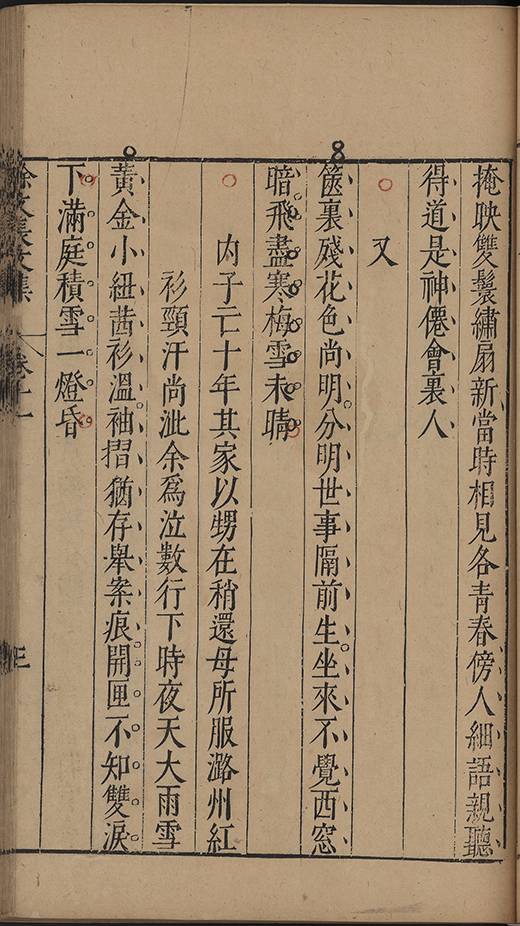 掩映雙鬟繡扇新當時相見各青春傍人細語親聽
得道是神僊會裏人
又
篋裏殘花色尚明分明世事隔前生坐來不覺西窓
暗飛盡寒梅雪未晴
內子亡十年其家以甥在稍還母所服潞州紅
衫頸汗尚泚余爲泣數行下時夜天大雨雪
黃金小紐茜衫溫袖摺猶存舉案痕開匣不知雙淚
下滿庭積雪一燈昏
徐文長文集 卷十一 三